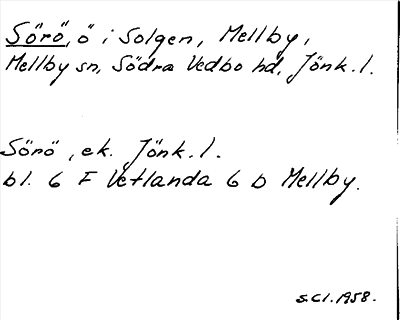 Sörö, ö i Solgen, Mellby,
Mellby sn, Södra Vedbo hd, Jönk. l.
Sörö, ek. Jönk. l.
bl. 6 F Vetlanda 6 b Mellby.
S.Cl. 1958.